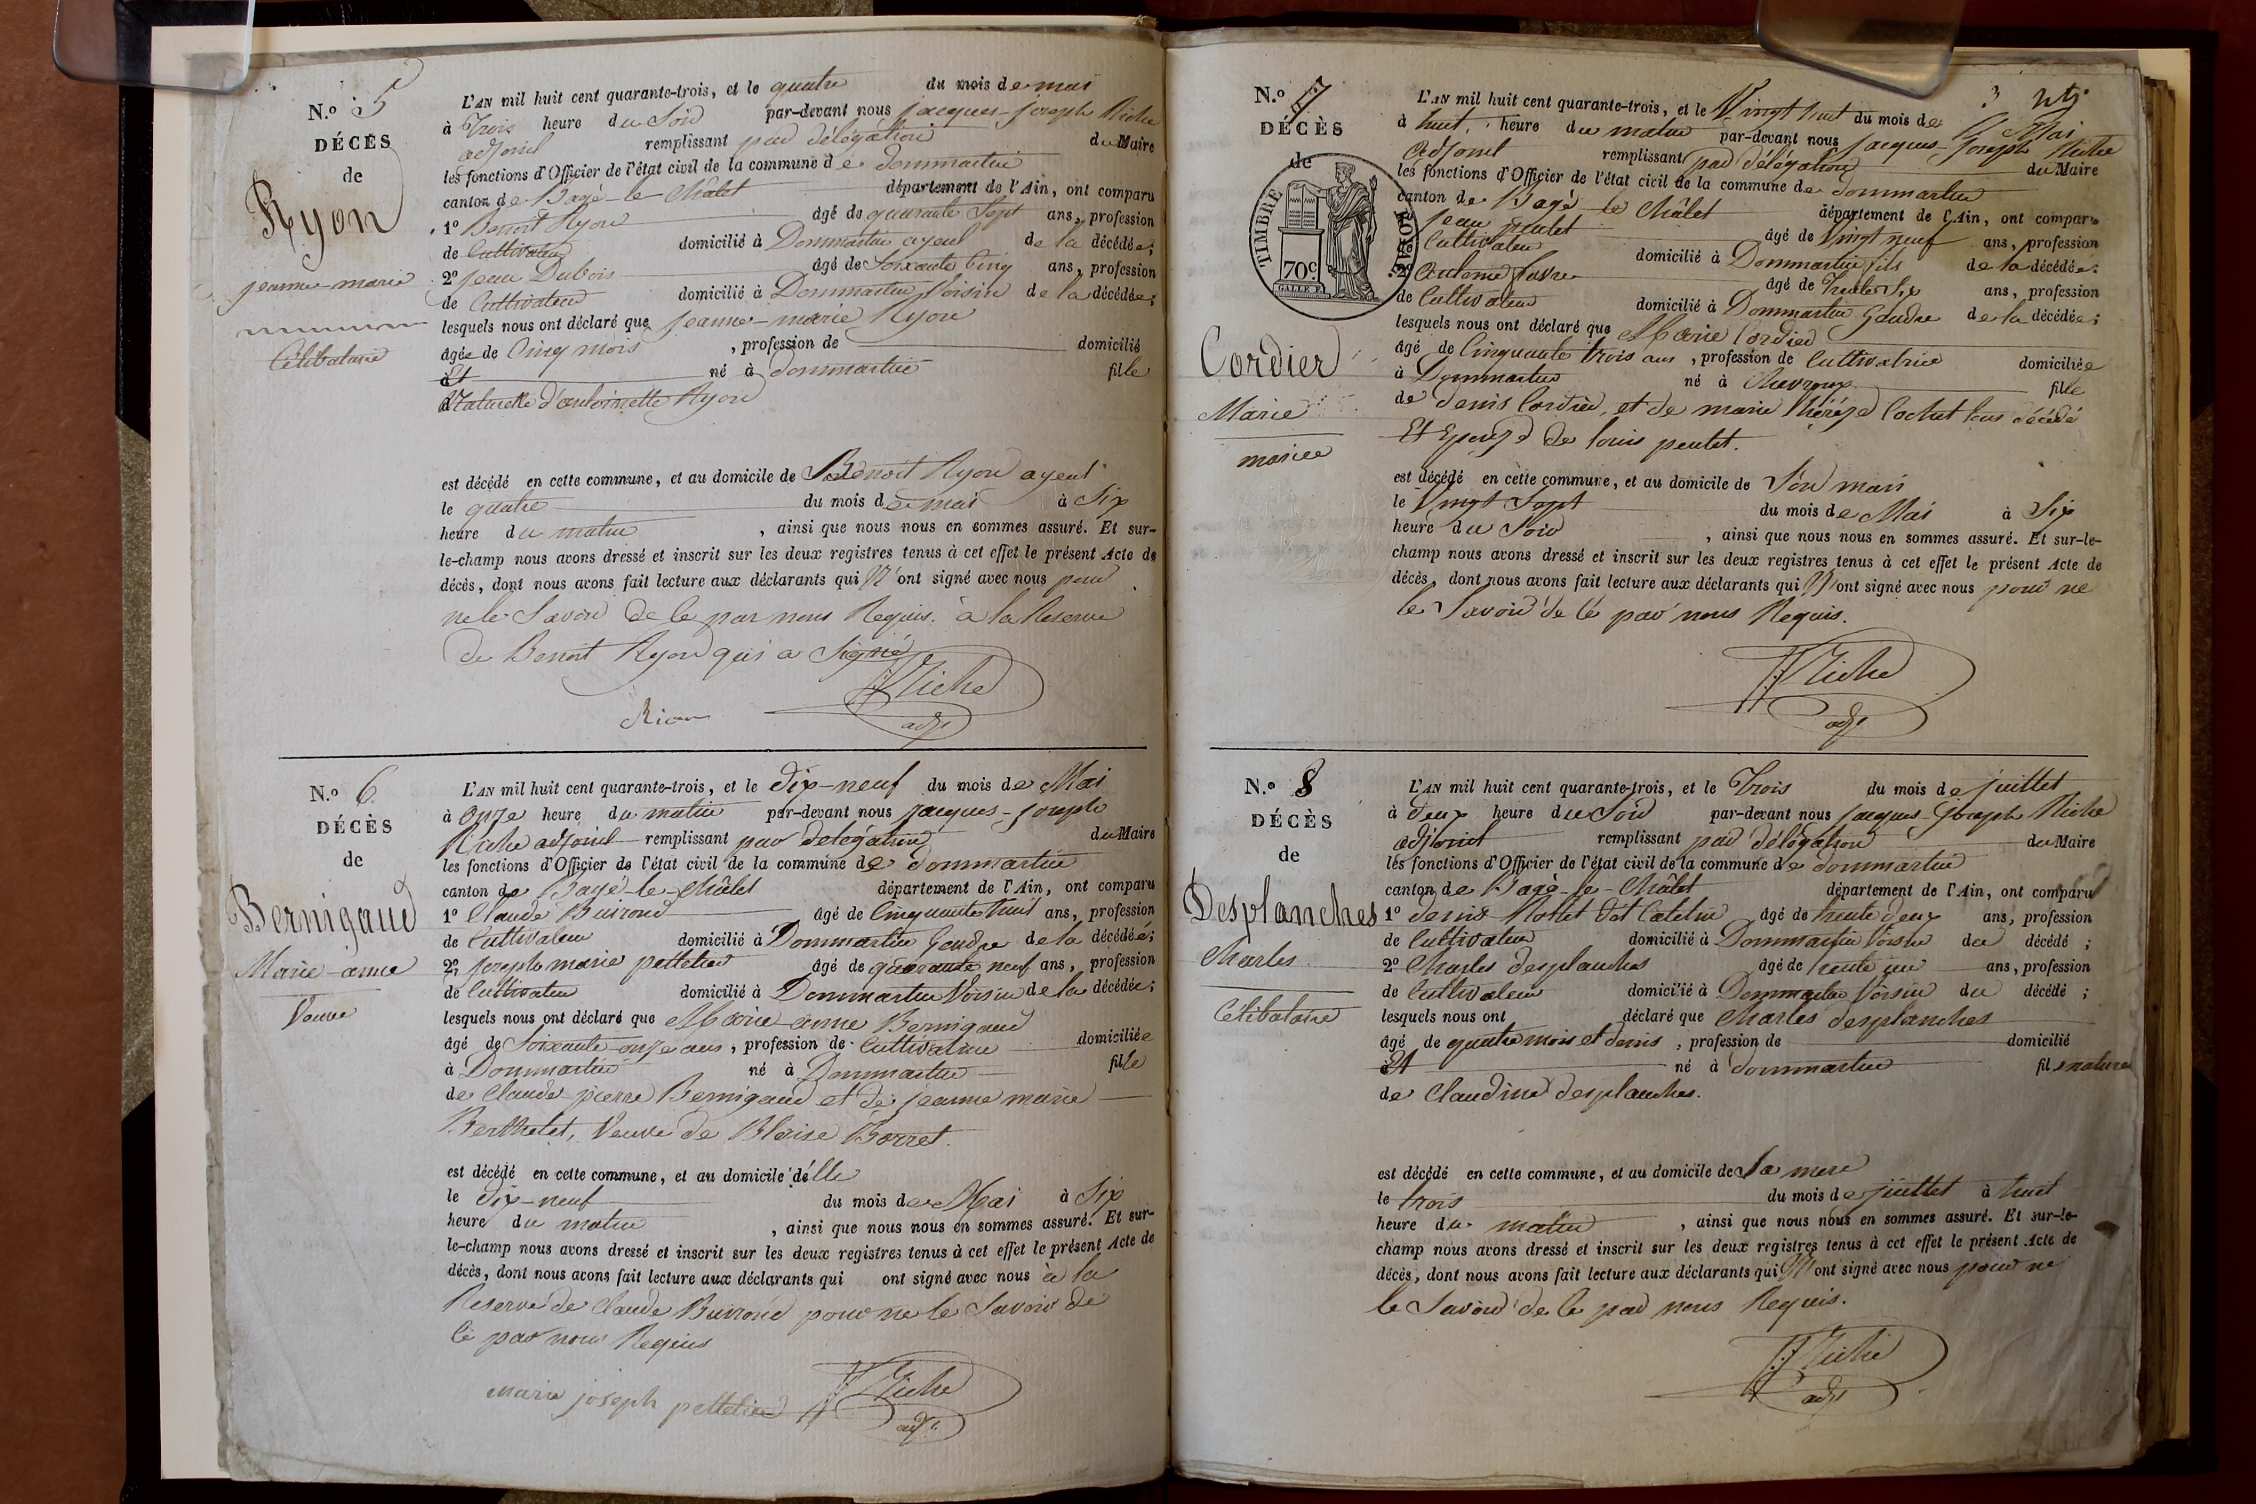 N.o 5
DÉCÈS
de
Ryon
jeanne-marie
Célibataire
L'AN mil huit cent quarante-trois, et le quatre du mois de mai
à Trois heure du Soir par-devant nous jacques-joseph Riche
adjoint remplissant par délégation du Maire
les fonctions d'Officier de l'état civil de la commune de dommartin
canton de Bagé-le-Châlet département de l'Ain, ont comparu
1o Benoit Ryon âgé de quarante Sept ans, profession
de Cultivateur domicilié à Dommartin ayeul de la décédée;
2o jean Dubois âgé de Soixante Cinq ans, profession
de Cultivateur domicilié à Dommartin Voisin de la décédée;
lesquels nous ont déclaré que jeanne-marie Ryon
âgée de Cinq mois, profession de domicilié
à Et né à dommartin fille
Naturelle d'antoinette Ryon
est décédé en cette commune, et au domicile de Benoit Ryon ayeul
le quatre du mois de mai à Six
heure du matin, ainsi que nous nous en sommes assuré. Et sur-
le-champ nous avons dressé et inscrit sur les deux registres tenus à cet effet le présent Acte de
décès, dont nous avons fait lecture aux déclarants qui N'ont signé avec nous pour
ne le Savoir de ce par nous Requis. à la Reserve
de Benoit Ryon qui a Signé
Rion
Riche
adjt
N.o 6
DÉCÈS
de
Bernigaud
Marie-anne
Veuve
L'AN mil huit cent quarante-trois, et le dix-neuf du mois de Mai
à Onze heure du matin par-devant nous jacques-joseph
Riche adjoint remplissant par délégation du Maire
les fonctions d'Officier de l'état civil de la commune de dommartin
canton de Bagé-le-Châlet département de l'Ain, ont comparu
1o Claude Buirond âgé de Cinquante huit ans, profession
de Cultivateur domicilié à Dommartin Gendre de la décédée;
2o joseph marie pelletier âgé de quarante neuf ans, profession
de Cultivateur domicilié à Dommartin Voisin de la décédée;
lesquels nous ont déclaré que Marie-anne Bernigaud
âgé de Soixante-onze ans, profession de Cultivatrice domiciliée
à Dommartin né à Dommartin fille
de Claude-pierre Bernigaud et de jeanne marie
Berthelet, Veuve de Blaise Borret.
est décédé en cette commune, et au domicile d'élle
le dix-neuf du mois de Mai à Six
heure du matin, ainsi que nous nous en sommes assuré. Et sur-
le-champ nous avons dressé et inscrit sur les deux registres tenus à cet effet le présent Acte de
décès, dont nous avons fait lecture aux déclarants qui ont signé avec nous à la
Reserve de Claude Buirond pour ne le Savoir de
ce par nous Requis
marie joseph pelletier
Riche
adjt
N.o 7
DÉCÈS
de
TIMBRE ROYAL
70c
Cordier
Marie
mariée
L'AN mil huit cent quarante-trois, et le Vingt huit du mois de Mai
à huit heure du matin par-devant nous jacques-joseph Riche
adjoint remplissant par délégation du Maire
les fonctions d'Officier de l'état civil de la commune de dommartin
canton de Bagé le Châlet département de l'Ain, ont comparu
jean peulet âgé de Vingt neuf ans, profession
Cultivateur domicilié à Dommartin fils de la décédée;
2o antoine favre âgé de trente Six ans, profession
de Cultivateur domicilié à Dommartin Gendre de la décédée;
lesquels nous ont déclaré que Marie Cordier
âgé de Cinquante trois ans, profession de Cultivatrice domiciliée
à Dommartin né à Chevroux fille
de denis Cordier, et de marie thérèze Cochet tous décédé
Et Epouze de louis peulet.
est décédé en cette commune, et au domicile de Son mari
le Vingt Sept du mois de Mai à Six
heure du Soir, ainsi que nous nous en sommes assuré. Et sur-le-
champ nous avons dressé et inscrit sur les deux registres tenus à cet effet le présent Acte de
décès, dont nous avons fait lecture aux déclarants qui N'ont signé avec nous pour ne
le Savoir de ce par nous Requis.
Riche
adjt
N.o 8
DÉCÈS
de
Desplanches
Charles
Célibataire
L'AN mil huit cent quarante-trois, et le Trois du mois de juillet
à deux heure du Soir par-devant nous jacques-joseph Riche
adjoint remplissant par délégation du Maire
les fonctions d'Officier de l'état civil de la commune de dommartin
canton de Bagé-le-Châlet département de l'Ain, ont comparu
1o denis Rollet dit Catelin âgé de trente deux ans, profession
de Cultivateur domicilié à Dommartin Voisin du décédé;
2o Charles desplanches âgé de trente un ans, profession
de Cultivateur domicilié à Dommartin Voisin du décédé;
lesquels nous ont déclaré que Charles desplanches
âgé de quatre mois et demis, profession de domicilié
à Et né à dommartin fils naturel
de Claudine desplanches.
est décédé en cette commune, et au domicile de Sa mere
le trois du mois de juillet à huit
heure du matin, ainsi que nous nous en sommes assuré. Et sur-le-
champ nous avons dressé et inscrit sur les deux registres tenus à cet effet le présent Acte de
décès, dont nous avons fait lecture aux déclarants qui N'ont signé avec nous pour ne
le Savoir de ce par nous Requis.
Riche
adjt